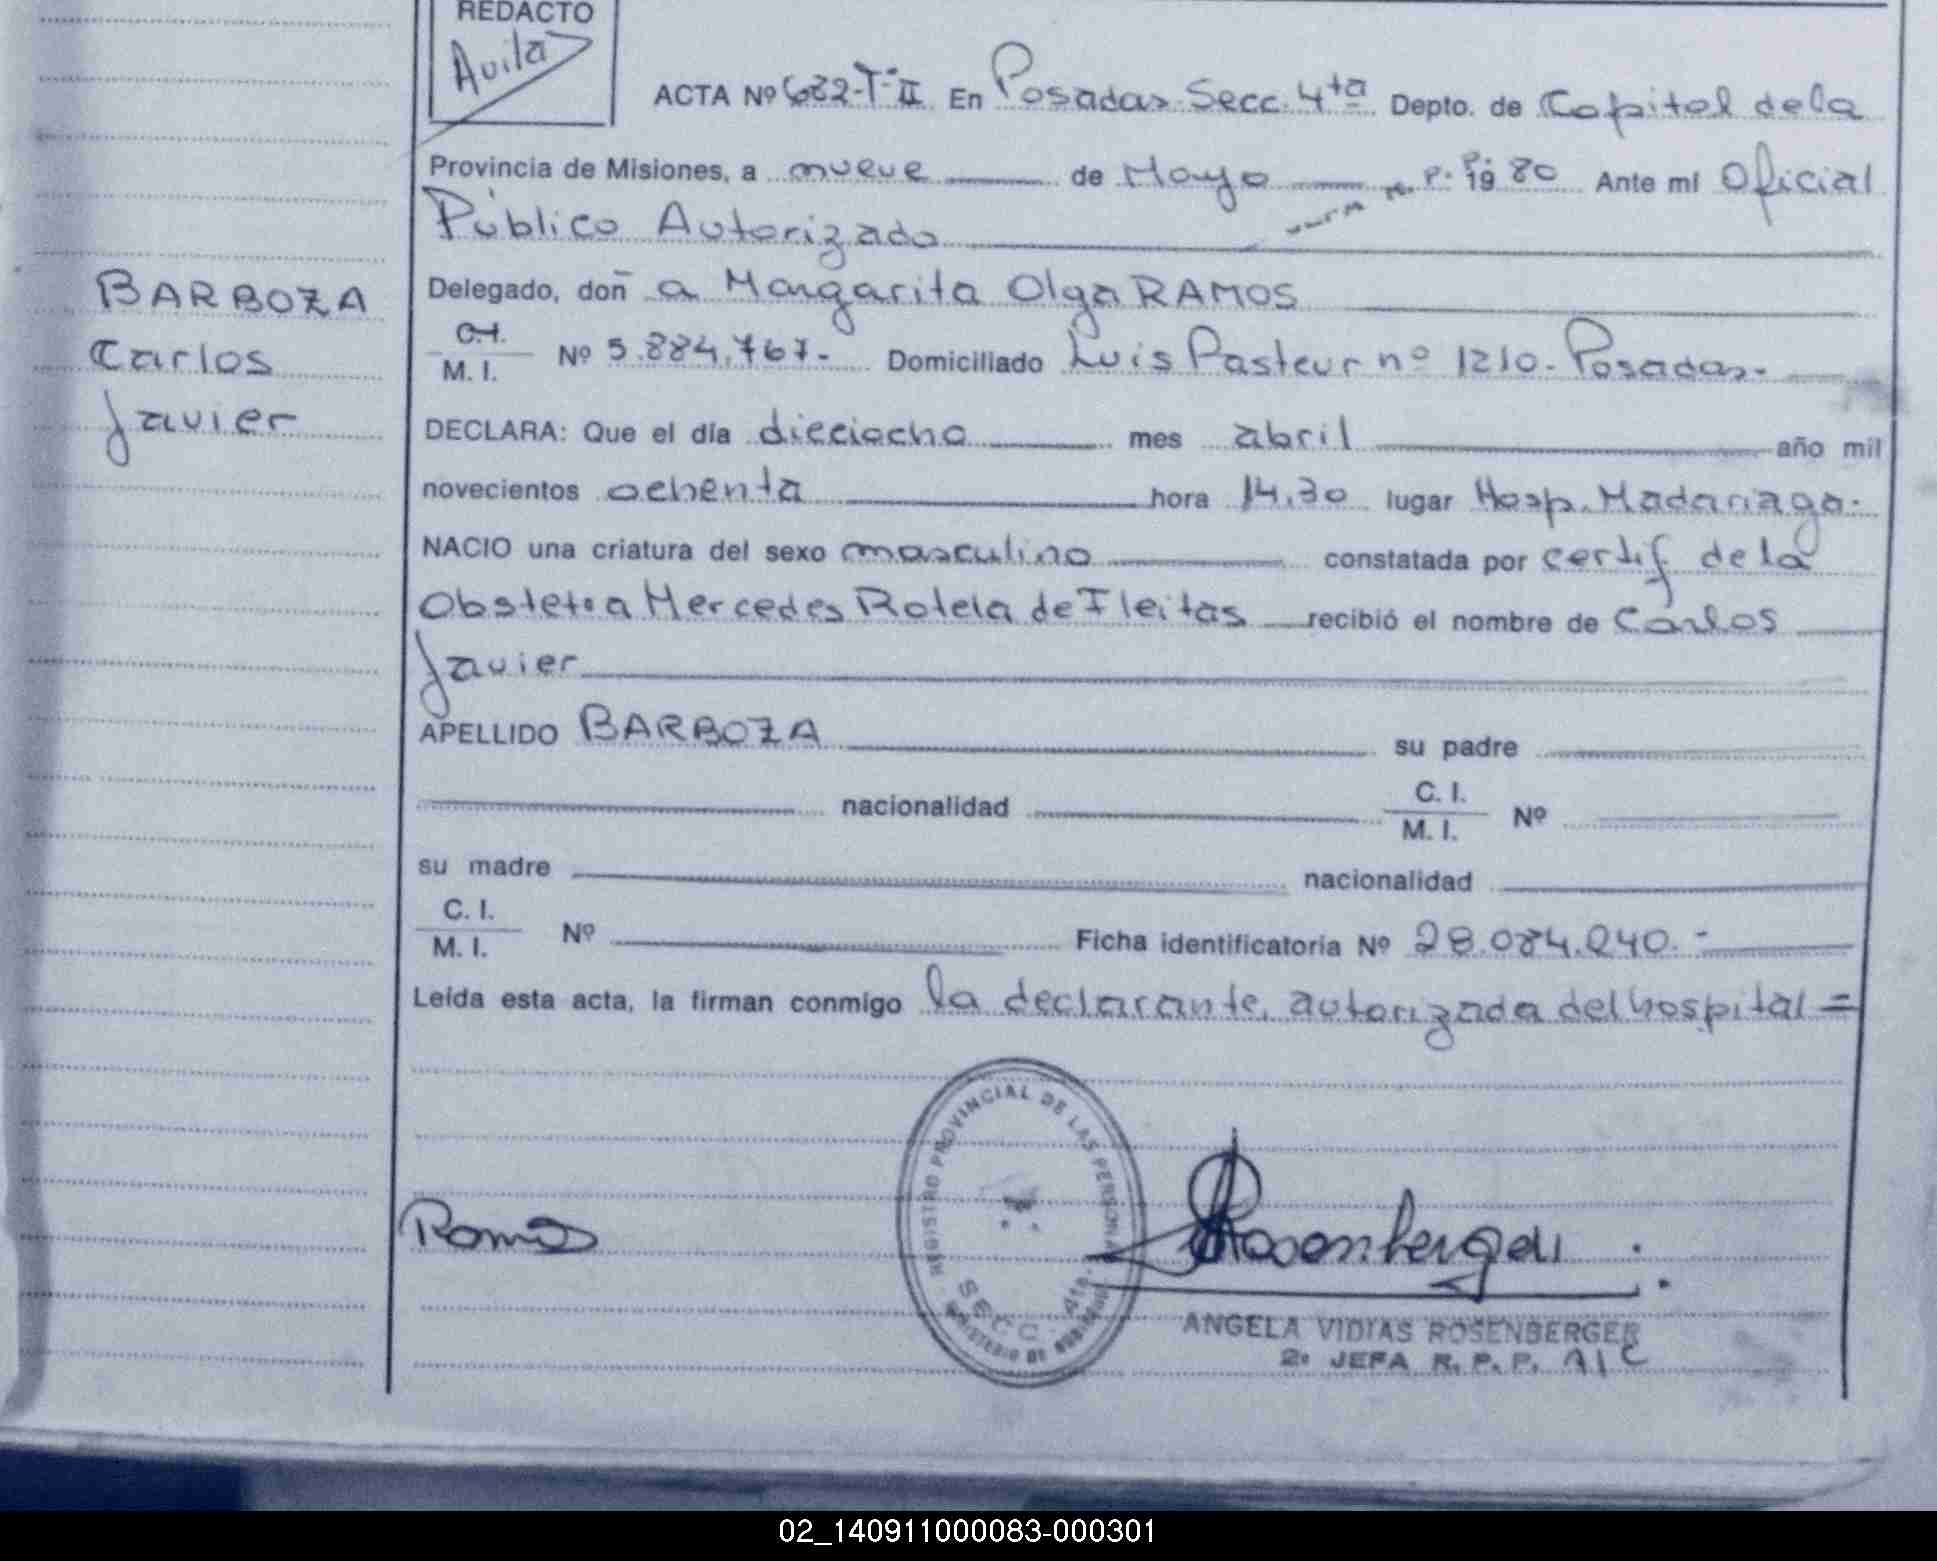 REDACTO
Avila
ACTA Nº 682-Tº II En Posadas Secc. 4ta Depto. de Capital de la
Provincia de Misiones, a nueve de Mayo 1980 Ante mi Oficial
Público Autorizado
Delegado, doñ a Margarita Olga RAMOS
M. I. Nº 5.884.767.- Domiciliado Luis Pasteur nº 1210-Posadas-
DECLARA: Que el día dieciocho mes abril año mil
novecientos ochenta hora 14,30 lugar Hosp. Madariaga-
NACIO una criatura del sexo masculino constatada por certif de la
Obstetra Mercedes Rotela de Fleitas recibió el nombre de Carlos
Javier
APELLIDO BARBOZA su padre
nacionalidad C. I. M. I. Nº
su madre nacionalidad
C. I. M. I. Nº Ficha identificatoria Nº 28.084.240.-
Leída esta acta, la firman conmigo la declarante, autorizada del hospital =
BARBOZA
Carlos
Javier
REGISTRO PROVINCIAL DE LAS PERSONAS
SECC. 4ta.
Ramos
Rosenberger
ANGELA VIDIAS ROSENBERGER
2º JEFA R. P. P. A/C
02_140911000083-000301